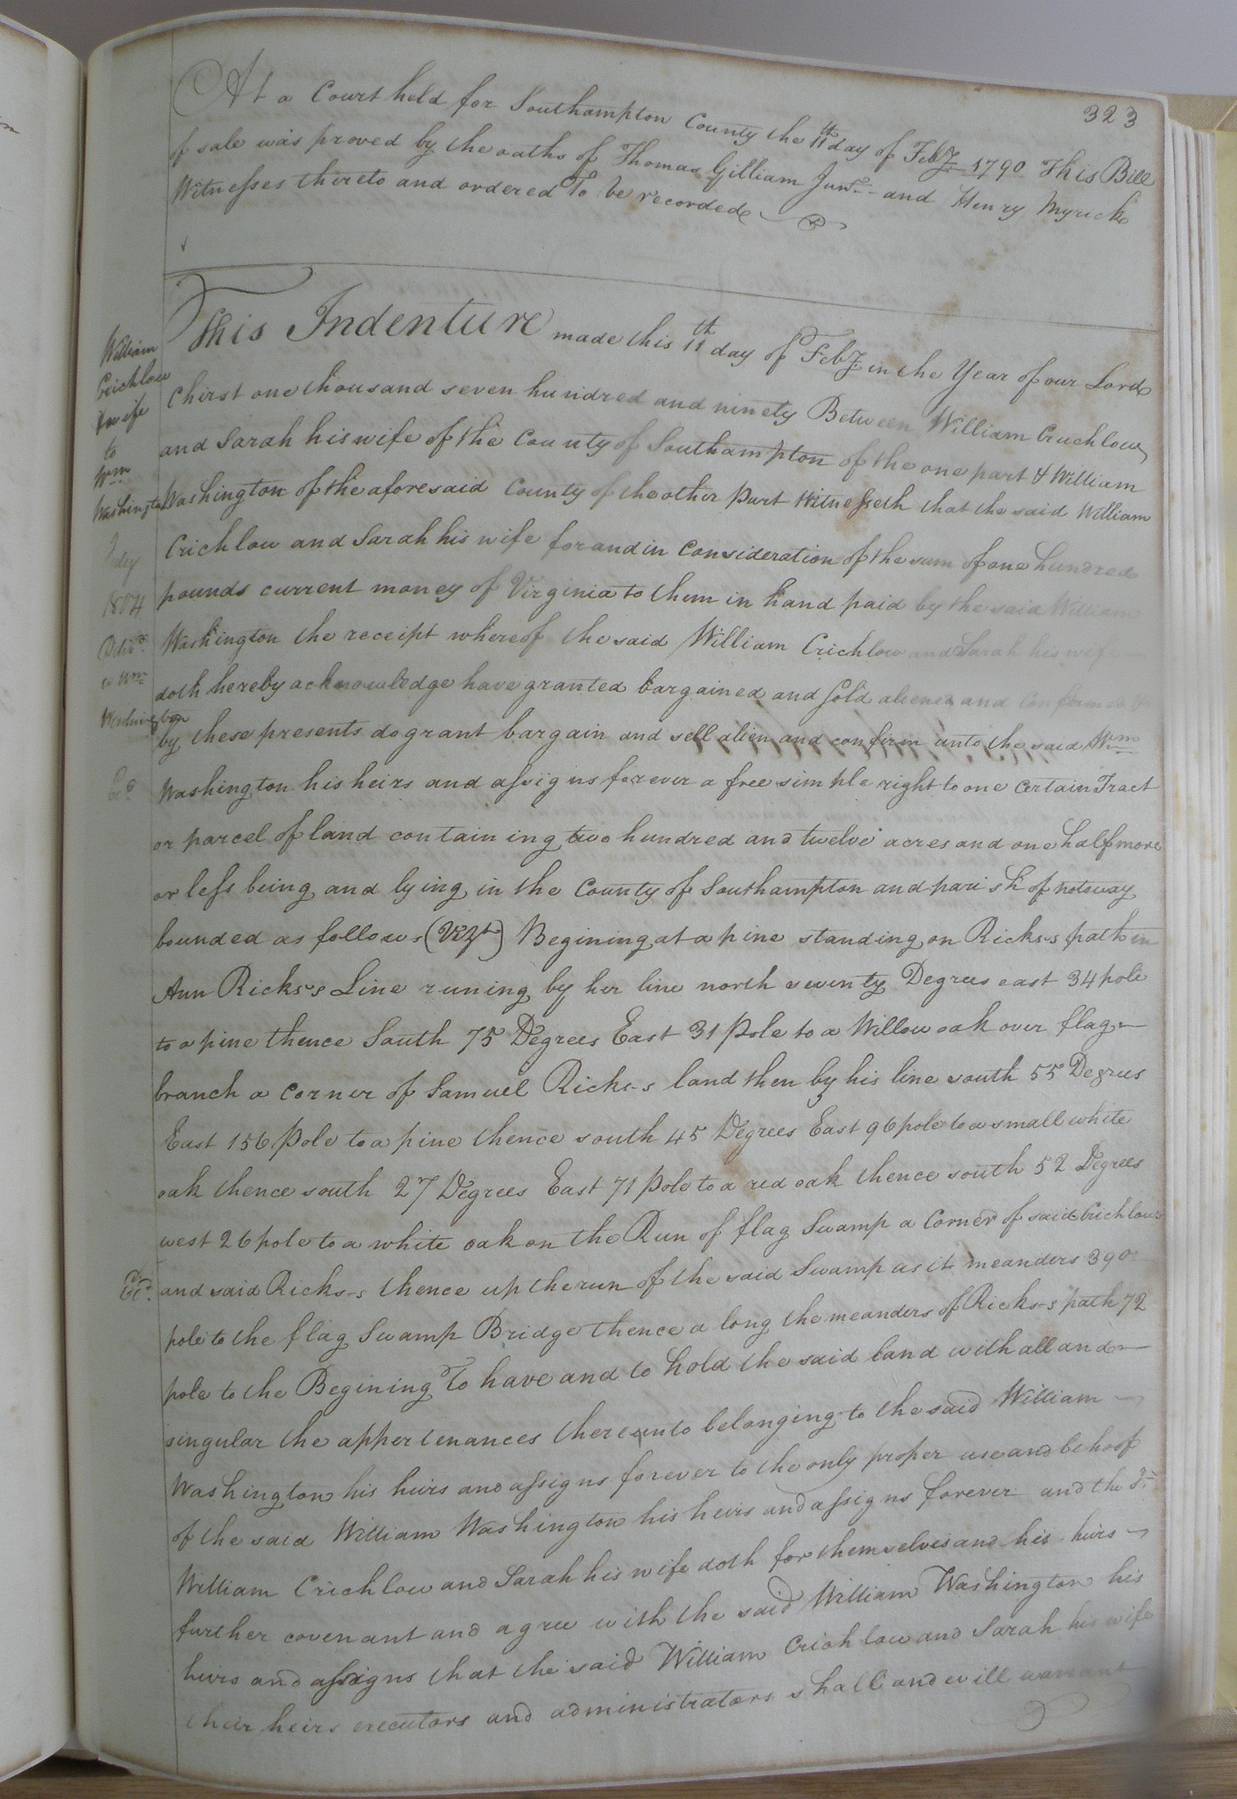 323
At a Court held for Southampton County the 11th day of Feby 1790 This Bill
of sale was proved by the oaths of Thomas Gilliam Junr. and Henry Myrick
Witnesses thereto and ordered To be recorded
William
Crichlow
& wife
to
Wm
Washington
1804
to Wm
Washington
This Indenture made this 11th day of Feby in the Year of our Lord
Christ one thousand seven hundred and ninety Between William Crichlow
and Sarah his wife of the County of Southampton of the one part & William
Washington of the aforesaid County of the other Part Witnesseth that the said William
Crichlow and Sarah his wife for and in Consideration of the sum of one hundred
pounds current money of Virginia to them in hand paid by the said William
Washington the receipt whereof the said William Crichlow and Sarah his wife
doth hereby acknowledge have granted bargained and sold aliened and confirmed &
by these presents do grant bargain and sell alien and confirm unto the said Wm
Washington his heirs and assigns forever a free simple right to one certain Tract
or parcel of land containing two hundred and twelve acres and one half more
or less being and lying in the County of Southampton and parish of notoway
bounded as follows (Vizt) Begining at a pine standing on Ricks's path in
Ann Ricks's Line runing by her line north seventy Degrees east 34 pole
to a pine thence South 75 Degrees East 31 Pole to a Willow oak over flag
branch a corner of Samuel Ricks's land then by his line south 55 Degrees
East 156 Pole to a pine thence south 45 Degrees East 96 pole to a small white
oak thence south 27 Degrees East 71 Pole to a red oak thence south 52 Degrees
west 26 pole to a white oak on the Run of flag Swamp a Corner of said Crichlow
and said Ricks's thence up the run of the said Swamp as it meanders 390
pole to the flag Swamp Bridge thence a long the meanders of Ricks's path 72
pole to the Begining To have and to hold the said land with all and
singular the appertenances thereunto belonging to the said William
Washington his heirs and assigns forever to the only proper use and behoof
of the said William Washington his heirs and assigns forever and the sd
William Crichlow and Sarah his wife doth for themselves and his heirs
further covenant and agree with the said William Washington his
heirs and assigns that the said William Crichlow and Sarah his wife
their heirs executors and administrators shall and will warrant